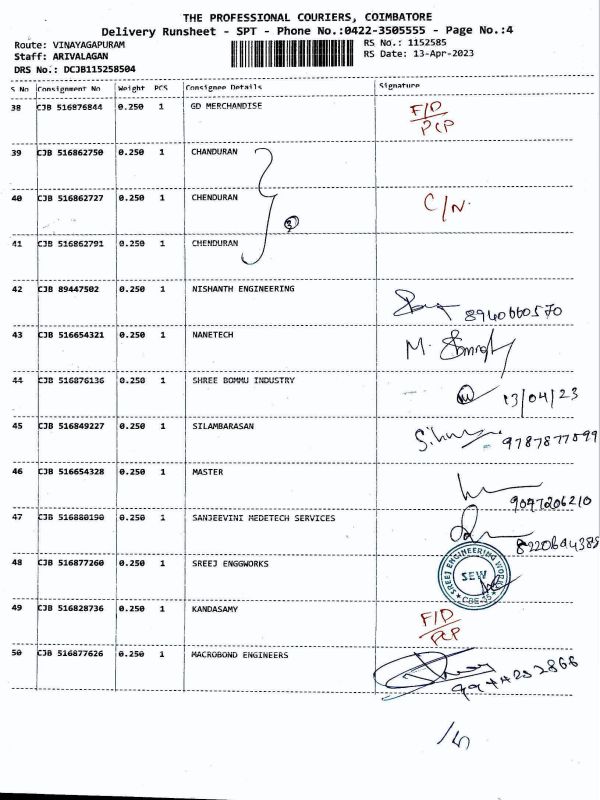 THE PROFESSIONAL COURIERS, COIMBATORE
Delivery Runsheet - SPT - Phone No.:0422-3505555 - Page No.:4
Route: VINAYAGAPURAM RS No.: 1152585
Staff: ARIVALAGAN RS Date: 13-Apr-2023
DRS No.: DCJB115258504
S No Consignment No Weight PCS Consignee Details Signature
38 CJB 516876844 0.250 1 GD MERCHANDISE F/D
PCP
39 CJB 516862750 0.250 1 CHANDURAN
40 CJB 516862727 0.250 1 CHENDURAN C/N.
41 CJB 516862791 0.250 1 CHENDURAN
42 CJB 89447502 0.250 1 NISHANTH ENGINEERING 8940660570
43 CJB 516654321 0.250 1 NANETECH M.
44 CJB 516876136 0.250 1 SHREE BOMMU INDUSTRY 13/04/23
45 CJB 516849227 0.250 1 SILAMBARASAN 9787877099
46 CJB 516654328 0.250 1 MASTER 9047206210
47 CJB 516880190 0.250 1 SANJEEVINI MEDETECH SERVICES 8220694388
48 CJB 516877260 0.250 1 SREEJ ENGGWORKS SREEJ ENGINEERING WORKS SEW CBE-35
49 CJB 516828736 0.250 1 KANDASAMY F/D
PCP
50 CJB 516877626 0.250 1 MACROBOND ENGINEERS